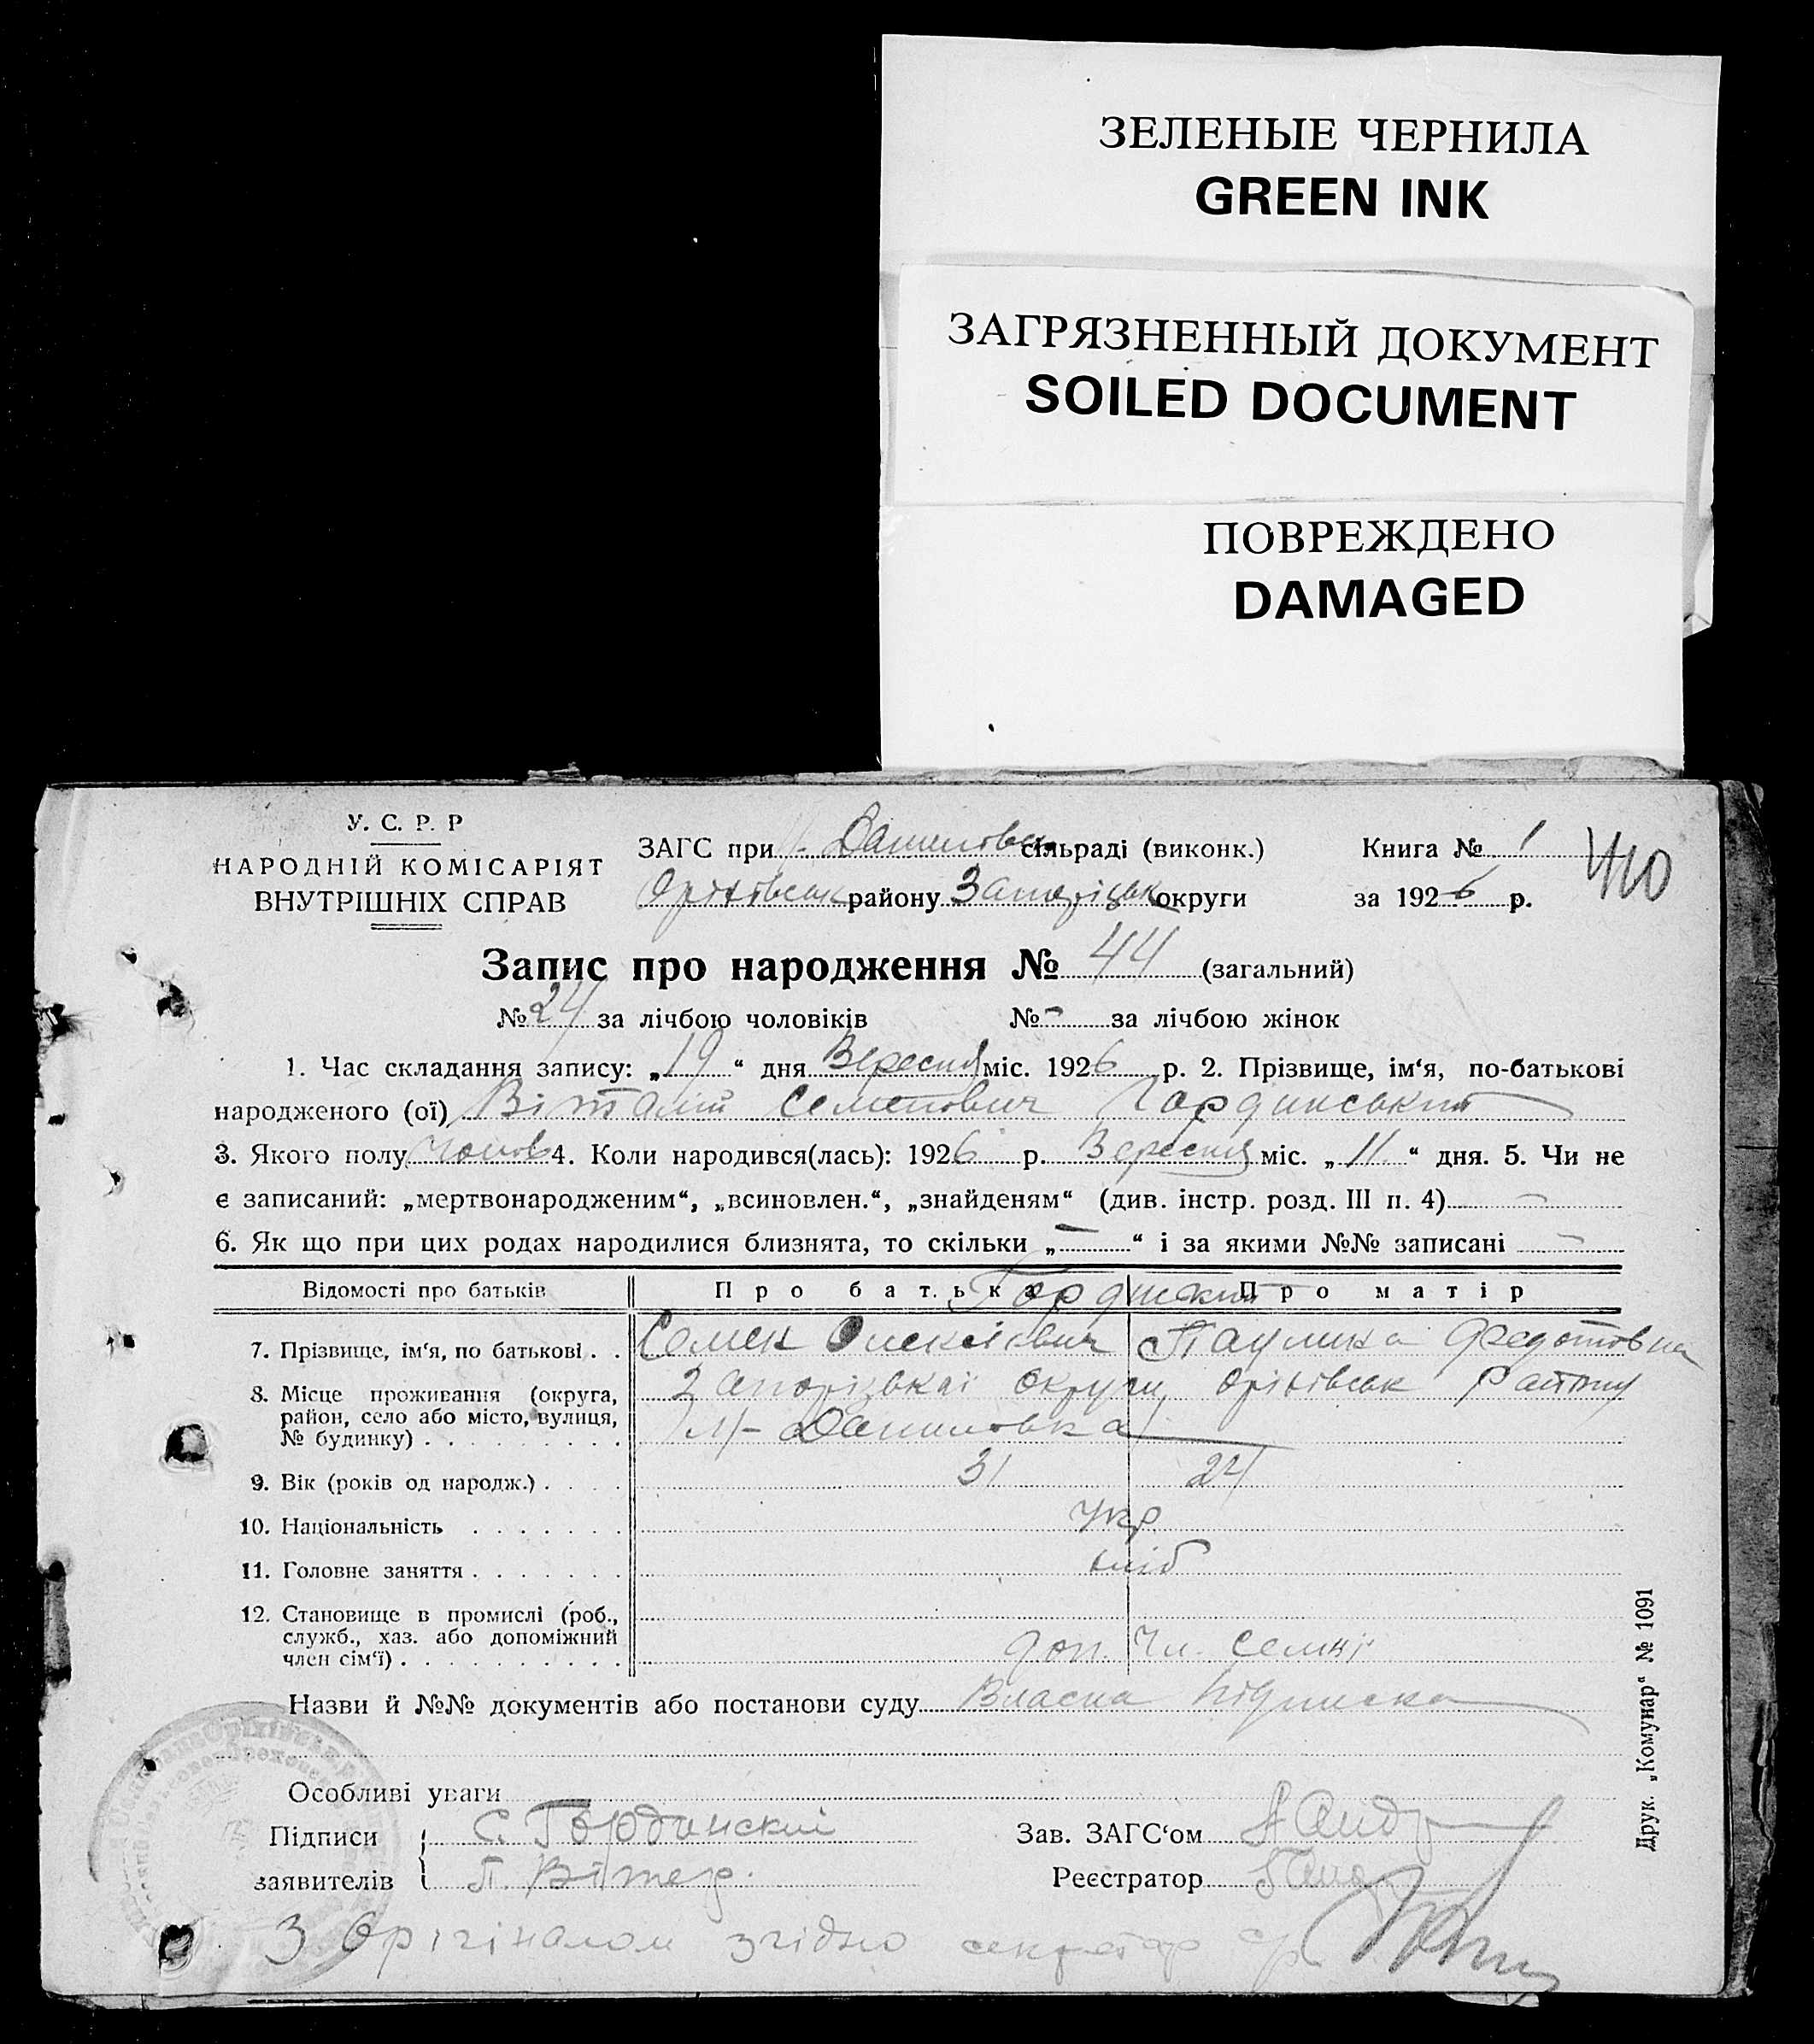 ЗЕЛЕНЫЕ ЧЕРНИЛА
GREEN INK
ЗАГРЯЗНЕННЫЙ ДОКУМЕНТ
SOILED DOCUMENT
ПОВРЕЖДЕНО
DAMAGED
У. С. Р. Р
НАРОДНІЙ КОМІСАРІЯТ
ВНУТРІШНІХ СПРАВ
ЗАГС при сільраді (виконк.)
Оріхівськ району Запорізьк округи
Книга № 1
за 1926 р.
410
Запис про народження № 44 (загальний)
№ 24 за лічбою чоловіків № - за лічбою жінок
1. Час складання запису: „19“ дня Вересня міс. 1926 р. 2. Прізвище, ім‘я, по-батькові
народженого (ої) Віталій Семенович Гординський
3. Якого полу чолов 4. Коли народився(лась): 1926 р. Вересня міс. „11“ дня. 5. Чи не
є записаний: „мертвонародженим“, „всиновлен.“, „знайденям“ (див. інстр. розд. III п. 4) —
6. Як що при цих родах народилися близнята, то скільки „—“ і за якими №№ записані —
Відомості про батьків Про батька Про матір
7. Прізвище, ім‘я, по батькові . . Семен Олексієвич Федотовна
8. Місце проживання (округа, Запорізької округи Оріхівськ Району
район, село або місто, вулиця, Даниловка
№ будинку) . . . . . . . . .
9. Вік (років од народж.) . . . . 31 24
10. Національність . . . . . . . Укр
11. Головне заняття . . . . . . . хліб
12. Становище в промислі (роб.,
служб., хаз. або допоміжний доп. чл. семї
член сім‘ї) . . . . . . . . . .
Назви й №№ документів або постанови суду Власна підписка
Особливі уваги
Підписи С. Гординский Зав. ЗАГС‘ом
заявителів П. Вітер. Реєстратор
З Орігіналом згідно секретар
Друк. „Комунар“ № 1091